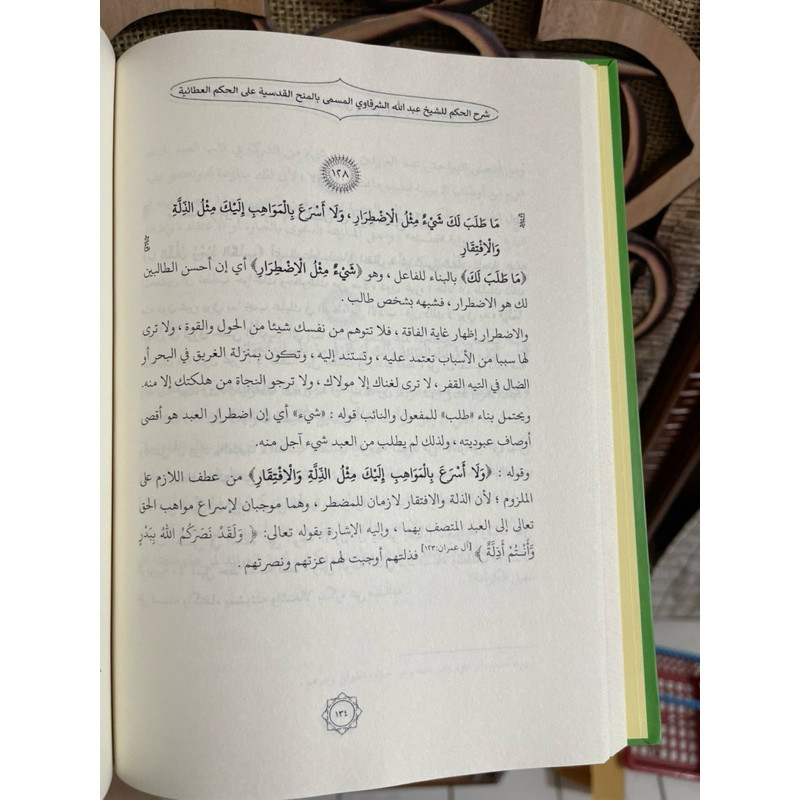 شرح الحكم للشيخ عبد الله الشرقاوي المسمى بالمنح القدسية على الحكم العطائية
١٢٨
مَا طَلَبَ لَكَ شَيْءٌ مِثْلُ الْاِضْطِرَارِ ، وَلَا أَسْرَعَ بِالْمَوَاهِبِ إِلَيْكَ مِثْلُ الذِّلَّةِ
وَالْاِفْتِقَارِ
﴿مَا طَلَبَ لَكَ﴾ بالبناء للفاعل ، وهو ﴿شَيْءٌ مِثْلُ الْاِضْطِرَارِ﴾ أي إن أحسن الطالبين
لك هو الاضطرار ، فشبهه بشخص طالب .
والاضطرار إظهار غاية الفاقة ، فلا تتوهم من نفسك شيئا من الحول والقوة ، ولا ترى
لها سببا من الأسباب تعتمد عليه ، وتستند إليه ، وتكون بمنزلة الغريق في البحر أو
الضال في التيه القفر ، لا ترى لغناك إلا مولاك ، ولا ترجو النجاة من هلكتك إلا منه.
ويحتمل بناء «طلب» للمفعول والنائب قوله : «شيء» أي إن اضطرار العبد هو أقصى
أوصاف عبوديته ، ولذلك لم يطلب من العبد شيء آجل منه.
وقوله : ﴿وَلَا أَسْرَعَ بِالْمَوَاهِبِ إِلَيْكَ مِثْلُ الذِّلَّةِ وَالْاِفْتِقَارِ﴾ من عطف اللازم على
الملزوم ؛ لأن الذلة والافتقار لازمان للمضطر ، وهما موجبان لإسراع مواهب الحق
تعالى إلى العبد المتصف بهما ، وإليه الإشارة بقوله تعالى: ﴿ وَلَقَدْ نَصَرَكُمُ اللهُ بِبَدْرٍ
وَأَنْتُمْ أَذِلَّةٌ ﴾ [آل عمران:١٢٣] فذلتهم أوجبت لهم عزتهم ونصرتهم .
١٣٤